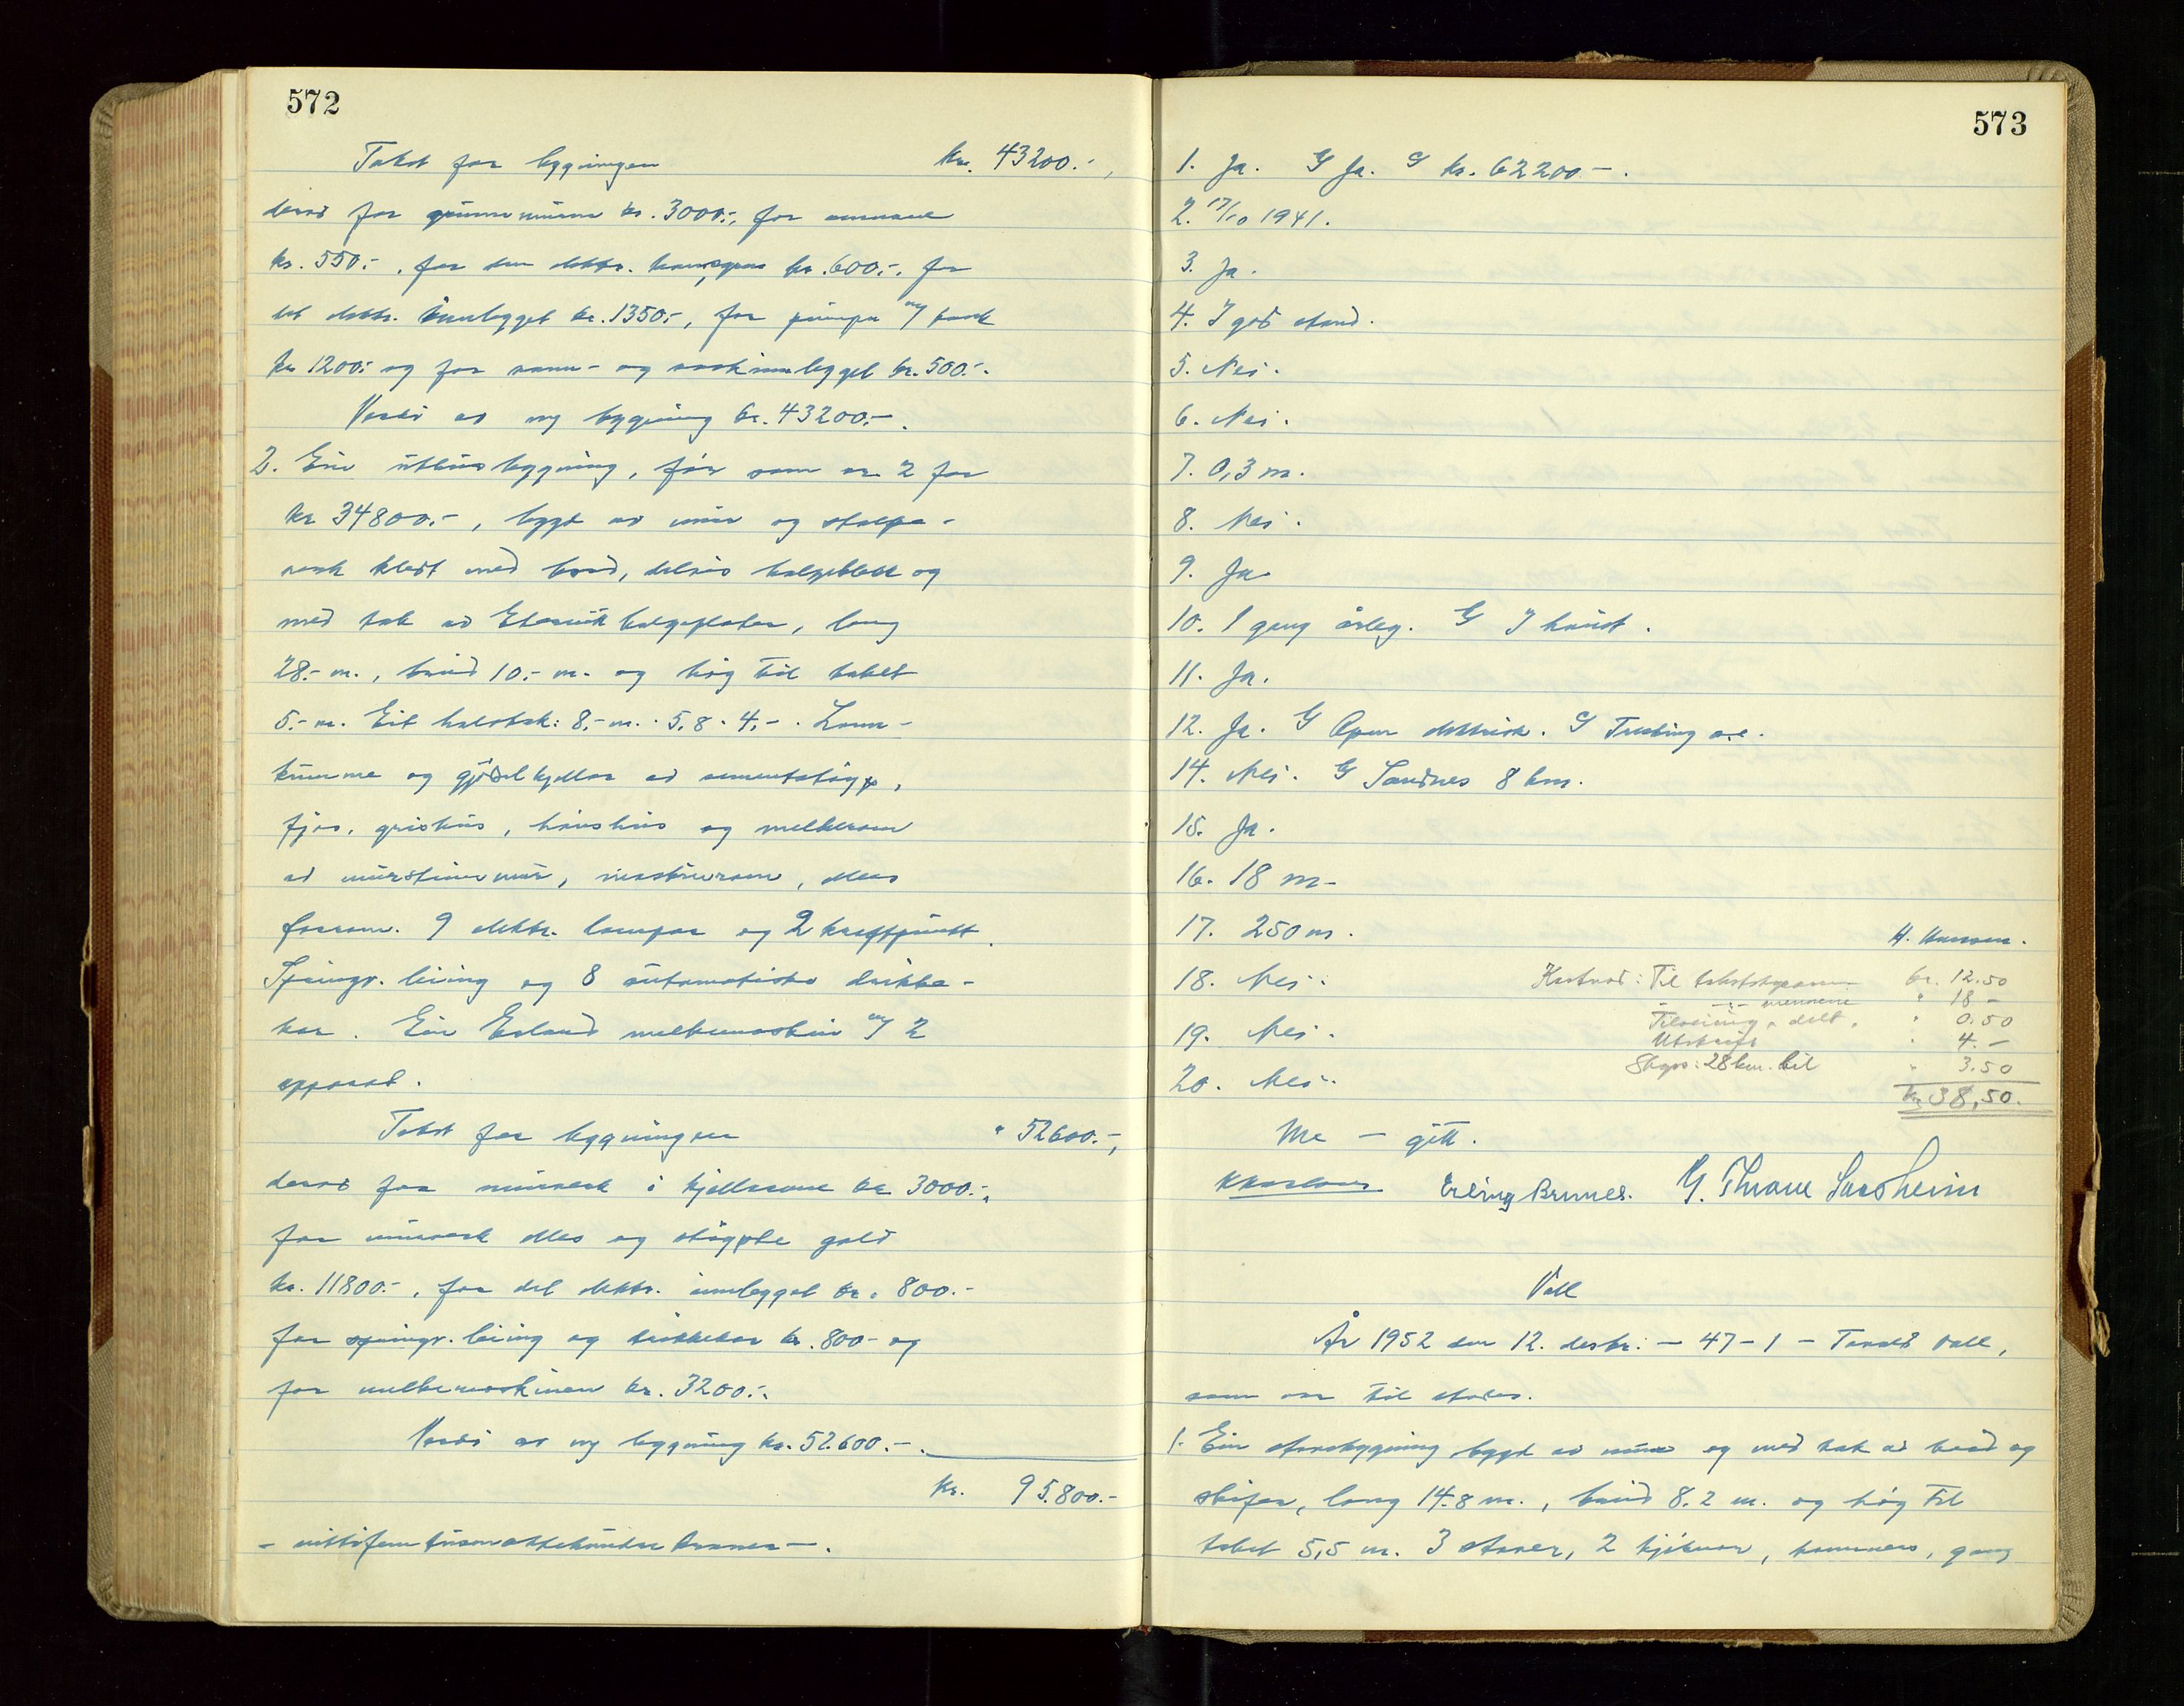 572
Takst for bygningen kr. 43200.-,
derav for grunnmuren kr. 3000.-, for omnane
kr. 550.-, for den elektr. kr. 600.-, for
det elektr. innlegget kr. 1350.-, for pumpa m/ tank
kr 1200.- og for vann- og vaskinnlegget kr. 500.-.
Verdi av ny bygning kr. 43200.-.
2. Ein uthusbygning, før som nr. 2 for
kr 34800.-, bygt av mur og stolpe-
verk kledt med bord, delvis bølgeblekk og
med tak av Eternit bølgeplater, lang
28.- m., breid 10.- m. og høg til taket
5.- m. Eit halvtak: 8.- m. · 5,8 · 4.-. Land-
kumme og gjødselkjellar av sementstøyp,
fjos, grishus, hønshus og melkerom
av mursteinsmur, maskinrom, elles
forrom. 9 elektr. lampor og 2 kraftpunkt.
Springv. leiing og 8 automatiske drikke-
kar. Ein Erland melkemaskin m/ 2
apparat.
Takst for bygningen " 52600.-,
derav for murverk i kjellarane kr 3000.-,
for murverk elles og støypte golv
kr. 11800.-, for det elektr. innlegget kr. 800.-
for springv. leiing og drikkekar kr. 800.- og
for melkemaskinen kr. 3200.-.
Verdi av ny bygning kr. 52600.-.
kr. 95.800.-
- nittifemtusenåttehundre kroner -.
573
1. Ja. G Ja. G kr. 62200.-.
2. 17/10 1941.
3. Ja.
4. I god stand.
5. Nei.
6. Nei.
7. 0,3 m.
8. Nei.
9. Ja
10. 1 gang årleg. G I haust.
11. Ja.
12. Ja. G Open elektrisk. G Tresking o.l.
14. Nei. G Sandnes 8 km.
15. Ja.
16. 18 m-
17. 250 m.
H. Hanssen.
18. Nei.
19. Nei.
20. Nei.
Kostnad: Til takstskjønn kr. 12.50
- -:- mennene " 18 -
Tilseiing, delt, " 0.50
Utskrift " 4.-
Skyss: 28 km. bil " 3.50
kr 38,50.
Me - gitt.
Erling Brunes. G. Thrane Sæsheim
Voll
År 1952 den 12. desbr: - 47 - 1 - Voll,
som var til stades.
1. Ein stovebygning bygt av mur og med tak av bord og
skifer, lang 14.8 m., breid 8.2 m. og høg til
taket 5,5 m. 3 stover, 2 kjøkener, kammers, gang